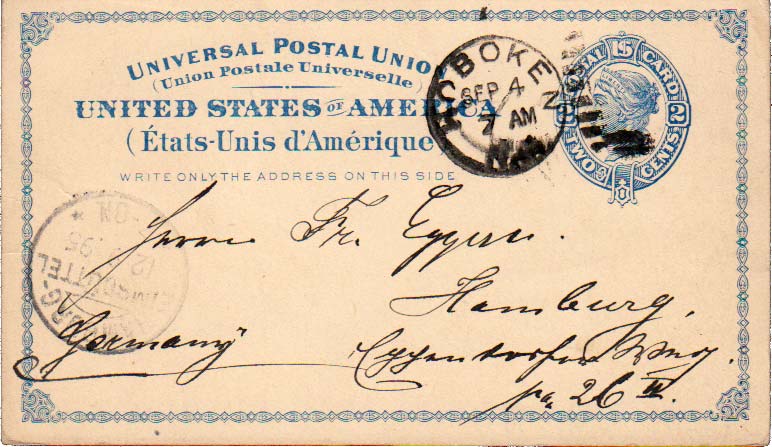 UNIVERSAL POSTAL UNION
(Union Postale Universelle)
UNITED STATES OF AMERICA
(États-Unis d'Amérique)
WRITE ONLY THE ADDRESS ON THIS SIDE
HOBOKEN
SEP 4
7 AM
N.J.
POSTAL CARD
TWO CENTS
Herrn Fr. Eggers.
Hamburg,
Germany
Eppendorfer Weg.
26 II.
HAMBURG
EIMSBÜTTEL
12 95